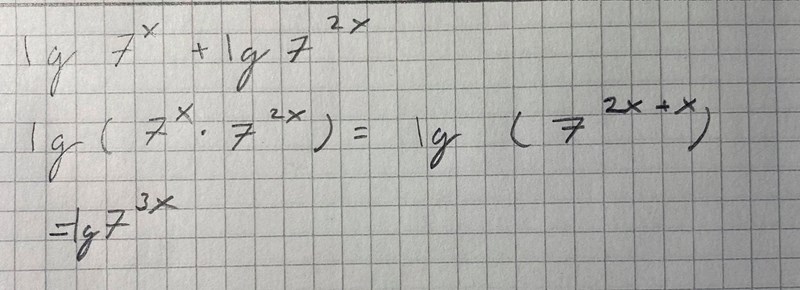 lg 7^x + lg 7^2x
lg ( 7^x · 7^2x ) = lg ( 7^2x+x )
= lg 7^3x